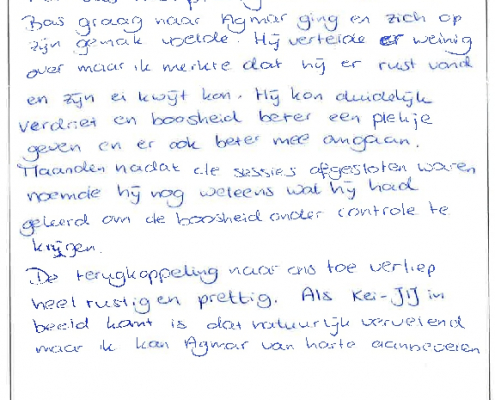 Bas graag naar Agmar ging en zich op
zijn gemak voelde. Hij vertelde er weinig
over maar ik merkte dat hij er rust vond
en zijn ei kwijt kon. Hij kon duidelijk
verdriet en boosheid beter een plekje
geven en er ook beter mee omgaan.
Maanden nadat de sessies afgesloten waren
noemde hij nog weleens wat hij had
geleerd om de boosheid onder controle te
krijgen.
De terugkoppeling naar ons toe verliep
heel rustig en prettig. Als Kei-JIJ in
beeld komt is dat natuurlijk vervelend
maar ik kan Agmar van harte aanbevelen